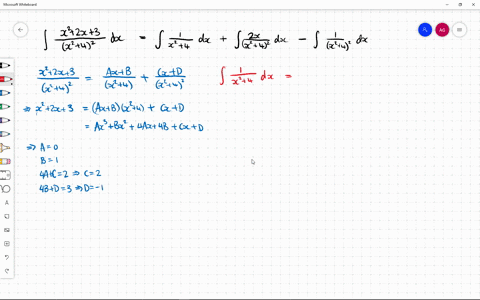 Microsoft Whiteboard
∫ (x²+2x+3)/(x²+4)² dx = ∫ 1/(x²+4) dx + ∫ 2x/(x²+4)² dx − ∫ 1/(x²+4)² dx
(x²+2x+3)/(x²+4)² = (Ax+B)/(x²+4) + (Cx+D)/(x²+4)²
∫ 1/(x²+4) dx =
⇒ x²+2x+3 = (Ax+B)(x²+4) + Cx+D
= Ax³+Bx²+4Ax+4B+Cx+D
⇒ A=0
B=1
4A+C=2 ⇒ C=2
4B+D=3 ⇒ D=-1